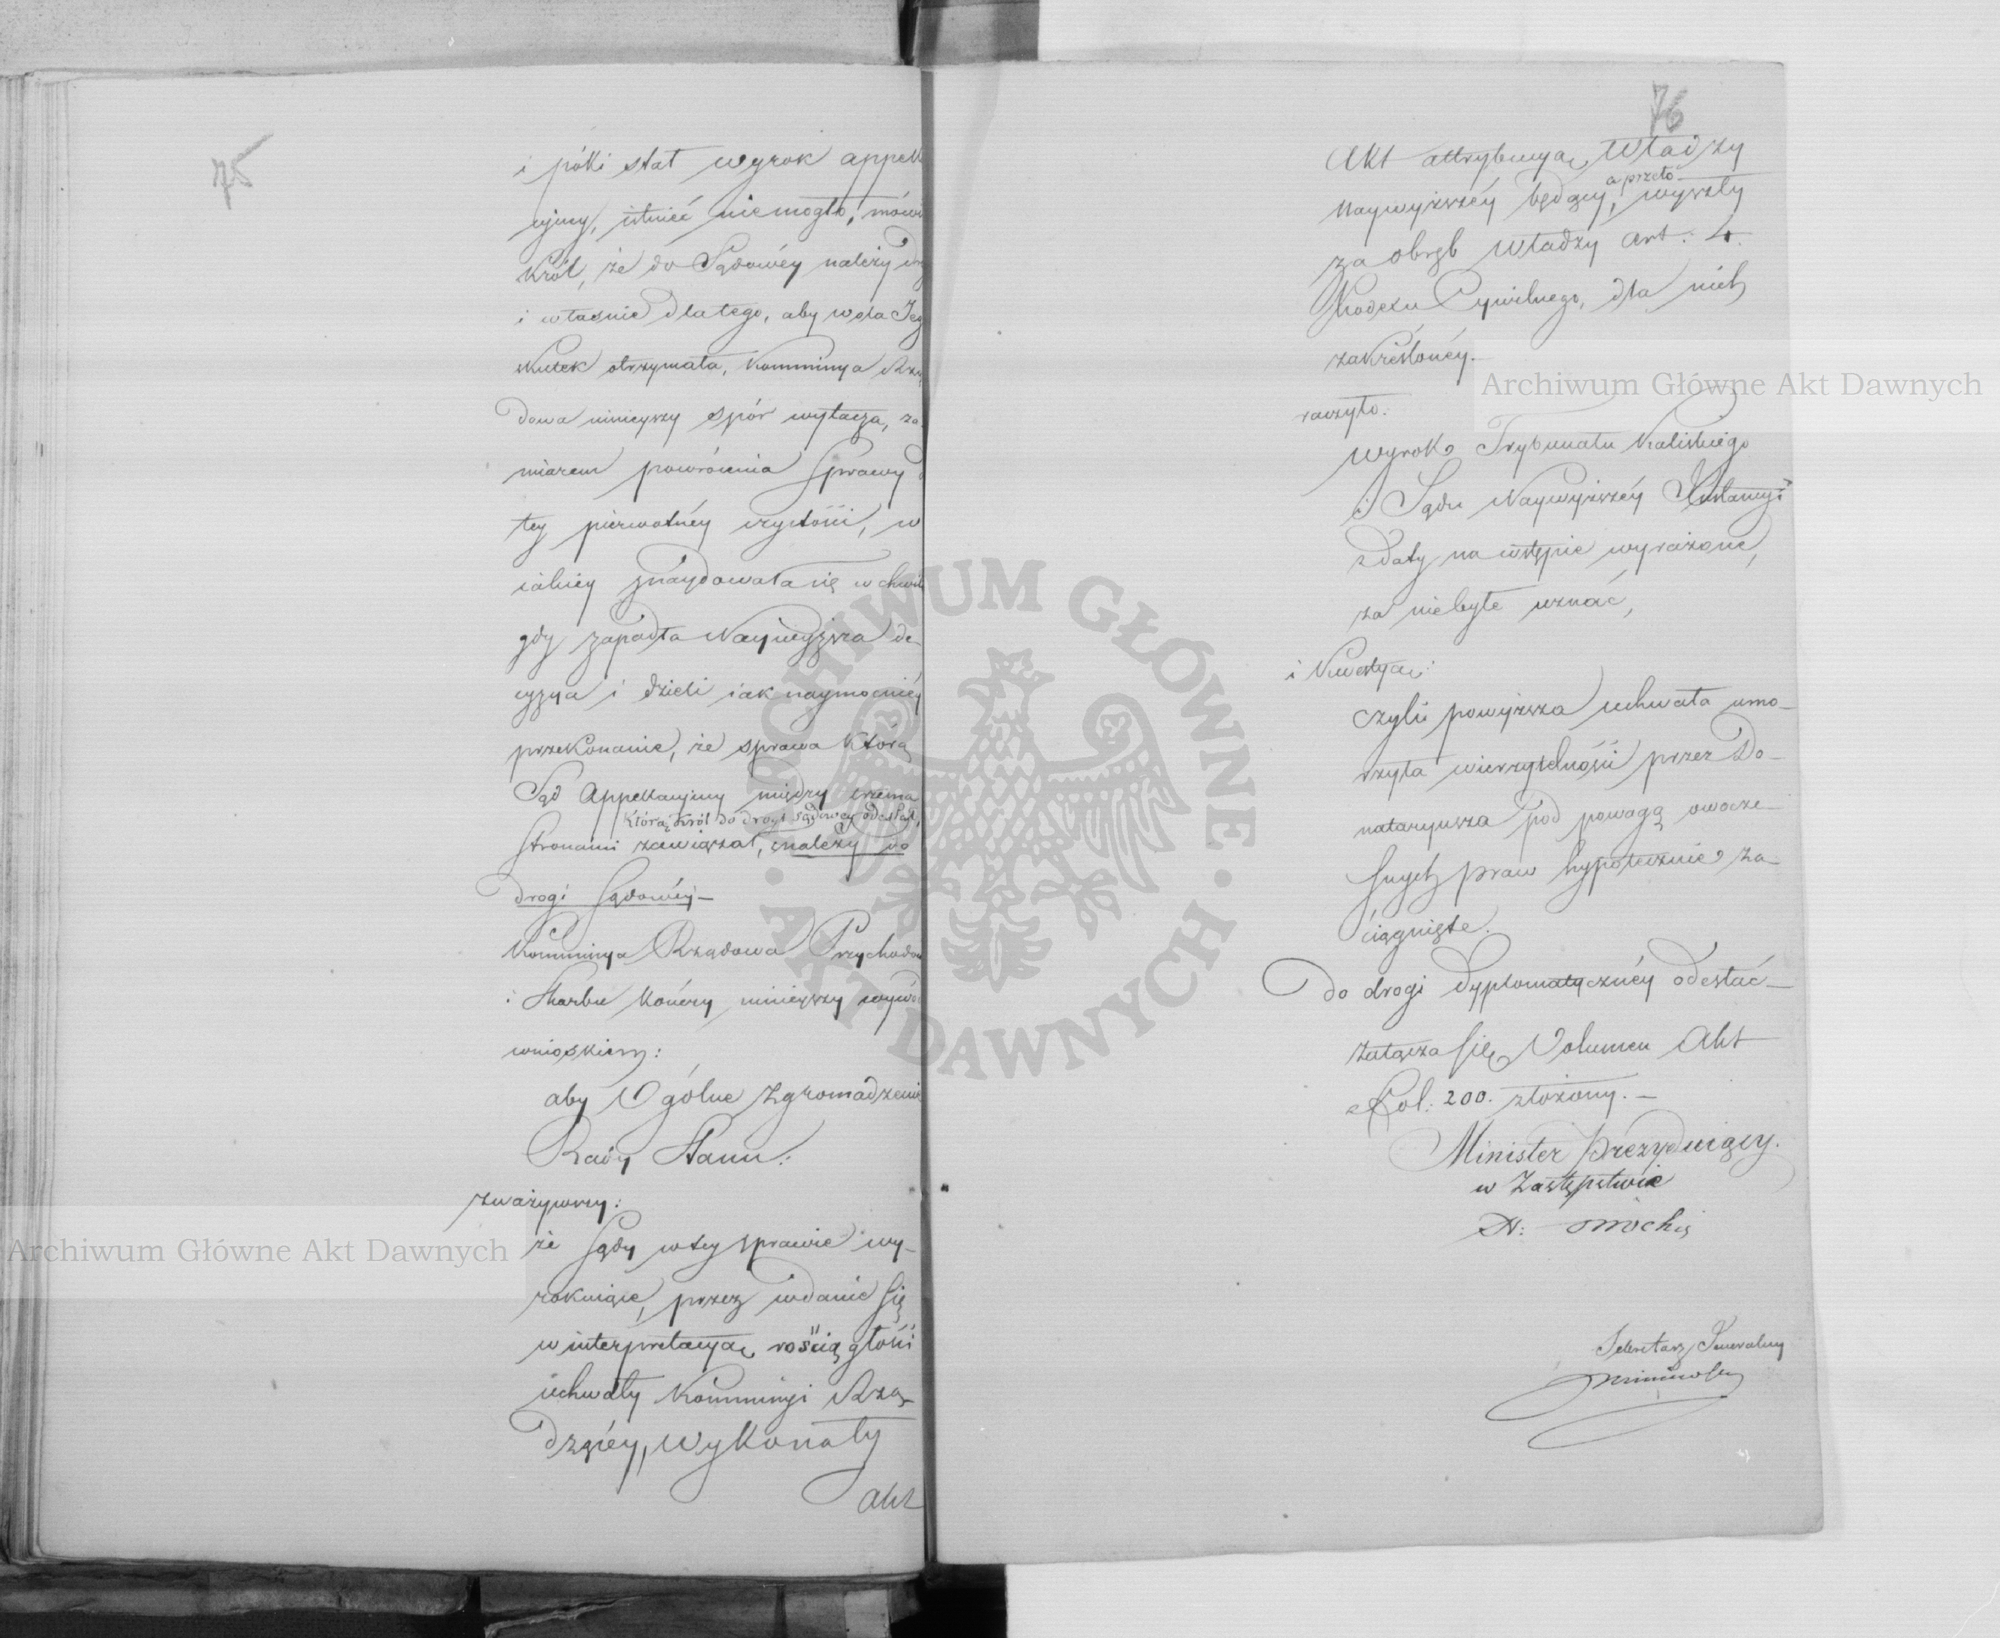 75
i póki stał wyrok appell
cyiny, istnieć nie mogło, mówi
Król, że do Sądowéy należy dro
i własnie dlatego, aby wola Jeg
skutek otrzymała, Kommissya Rzą
dowa ninieyszy spór wytacza, za
miarem powrócenia Sprawy d
tey pierwotnéy czystości, w
iakiey znaydowała się w chwili
gdy zapadła Naywyższa de-
cyzya i dzieli iak naymocniéy
przekonanie, że sprawa którą
Sąd Appellacyiny między trzema
którą Król do drogi sądowey odesłał,
Stronami zawiązał, należy do
drogi Sądowéy—
Kommissya Rządowa Przychodów
i Skarbu kończy ninieyszy wywód
wnioskiem:
aby Ogólne Zgromadzenie
Rady Stanu:
zważywszy:
że Sądy w tey sprawie wy-
rokuiące, przez wdanie się
w interpretacyą rościągłości
uchwały Kommissyi Rzą-
dzącéy, wykonały
akt
76
Akt attrybucyą Władzy
Naywyższéy będący, a przeto wyszły
za obręb władzy art: 4.
Kodexu Cywilnego, dla nich
zakreślonéy.—
raczyło:
wyrok Trybunału Kaliskiego
i Sądu Naywyższéy Instancyi
z daty na wstępie wyrażone,
za niebyłe uznać,
i Kwestyą:
czyli powyższa uchwała umo-
rzyła wierzytelności przez Do-
nataryusza pod powagą owocze-
snych praw hypotecznie za-
ciągnięte.
Do drogi dyplomatycznéy odesłać—
Załącza się Volumen Akt
z Fol: 200. złożony.—
Minister Prezyduiący.
w Zastępstwie
Sekretarz Jeneralny